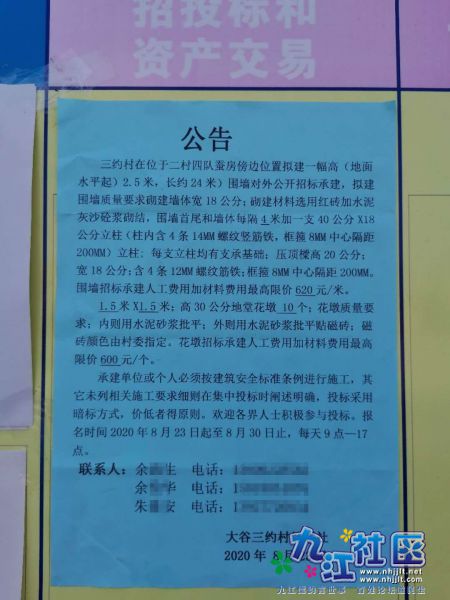 招投标和
资产交易
公告
三约村在位于二村四队蚕房傍边位置拟建一幅高（地面
水平起）2.5 米，长约 24 米）围墙对外公开招标承建，拟建
围墙质量要求砌建墙体宽 18 公分；砌建材料选用红砖加水泥
灰沙砼浆砌结，围墙首尾和墙体每隔 4 米加一支 40 公分 X18
公分立柱（柱内含 4 条 14MM 螺纹竖筋铁，框箍 8MM 中心隔距
200MM）立柱：每支立柱均有支承基础；压顶樑高 20 公分；
宽 18 公分；含 4 条 12MM 螺纹筋铁；框箍 8MM 中心隔距 200MM。
围墙招标承建人工费用加材料费用最高限价 620 元/米。
1.5 米 X1.5 米；高 30 公分地堂花墩 10 个；花墩质量要
求；内则用水泥砂浆批平；外则用水泥砂浆批平贴磁砖；磁
砖颜色由村委指定。花墩招标承建人工费用加材料费用最高
限价 600 元/个。
承建单位或个人必须按建筑安全标准条例进行施工，其
它未列相关施工要求细则在集中投标时阐述明确，投标采用
暗标方式，价低者得原则。欢迎各界人士积极参与投标。报
名时间 2020 年 8 月 23 日起至 8 月 30 日止，每天 9 点—17
点。
联系人：余 生 电话：
余 华 电话：
朱 安 电话：
大谷三约村 社
2020 年 8 月
九江社区
www.nhjjlt.net
www.nhjjlt.com
九江儒韵言世事